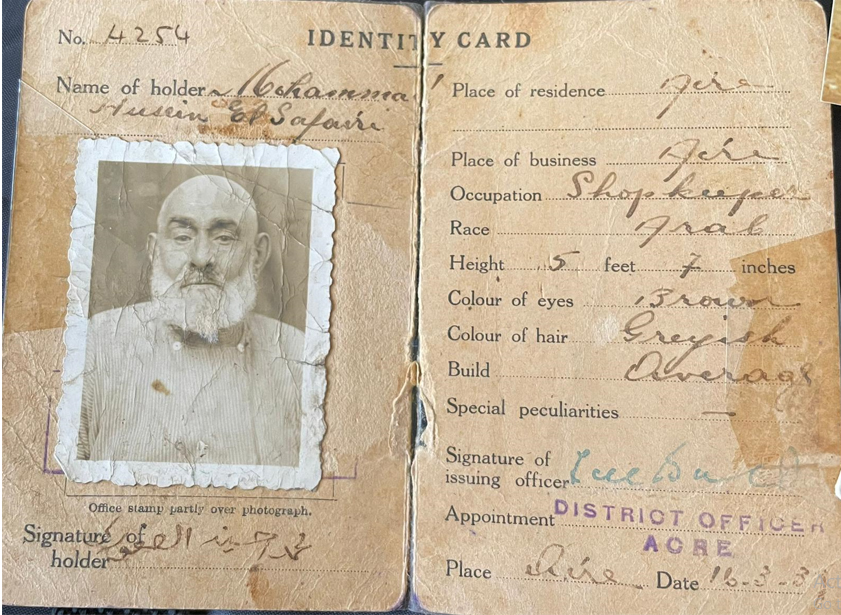 IDENTITY CARD
No. 4254
Name of holder Mohamma
Husein El Safadi
Office stamp partly over photograph.
Signature of
holder
Place of residence Acre
Place of business Acre
Occupation Shopkeeper
Race Arab
Height 5 feet 7 inches
Colour of eyes Brown
Colour of hair Greyish
Build Average
Special peculiarities —
Signature of
issuing officer
Appointment DISTRICT OFFICER
ACRE
Place Acre Date 16-3-3